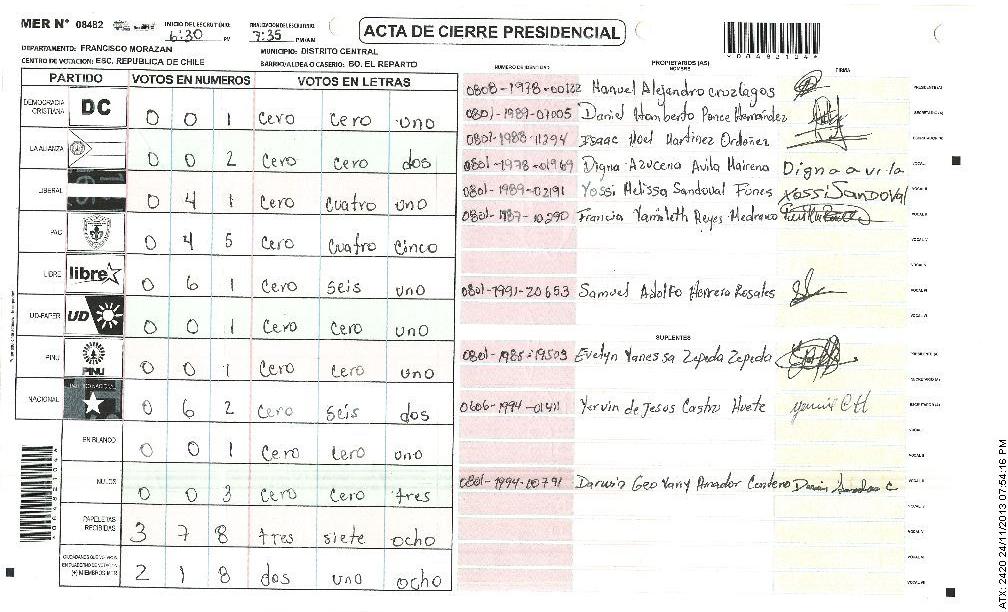 MER N° 08482
INICIO DEL ESCRUTINIO:
6:30 PM
FINALIZACION DEL ESCRUTINIO:
7:35 PM/AM
ACTA DE CIERRE PRESIDENCIAL
DEPARTAMENTO: FRANCISCO MORAZAN
MUNICIPIO: DISTRITO CENTRAL
CENTRO DE VOTACION: ESC. REPUBLICA DE CHILE
BARRIO/ALDEA O CASERIO: BO. EL REPARTO
PARTIDO VOTOS EN NUMEROS VOTOS EN LETRAS
DEMOCRACIA CRISTIANA DC 0 0 1 Cero Cero uno
LA ALIANZA 0 0 2 Cero cero dos
LIBERAL 0 4 1 Cero Cuatro uno
PAC 0 4 5 Cero Cuatro Cinco
LIBRE libre 0 6 1 Cero Seis uno
UD-FAPER UD 0 0 1 Cero Cero uno
PINU PINU 0 0 1 Cero Cero uno
NACIONAL 0 6 2 Cero Seis dos
EN BLANCO 0 0 1 Cero Cero uno
NULOS 0 0 3 Cero Cero tres
PAPELETAS RECIBIDAS 3 7 8 tres siete ocho
2 1 8 dos uno ocho
NUMERO DE IDENTIDAD PROPIETARIOS (AS) NOMBRE FIRMA
0808-1978-00122 Manuel Alejandro Cruz Lagos PRESIDENTE(A)
0801-1989-07005 Daniel Humberto Ponce Hernández SECRETARIO(A)
0801-1988-11294 Isaac Noel Martinez Ordoñez ESCRUTADOR(A)
0801-1978-01969 Digna Azucena Avila Mairena Digna avila VOCAL I
0801-1989-02191 Yossi Melissa Sandoval Funes Yossi Sandoval VOCAL II
0801-1987-10290 Francia Yamileth Reyes Medrano
0801-1991-20653 Samuel Adolfo Herrera Rosales
SUPLENTES
0801-1985-19503 Evelyn Vanessa Zepeda Zepeda PRESIDENTE(A)
SECRETARIO(A)
0606-1994-01411 Yervin de Jesus Castro Huete ESCRUTADOR(A)
0801-1994-00791 Darwin Geovany Amador Centeno
ATX: 2420 24/11/2013 07:54:16 PM